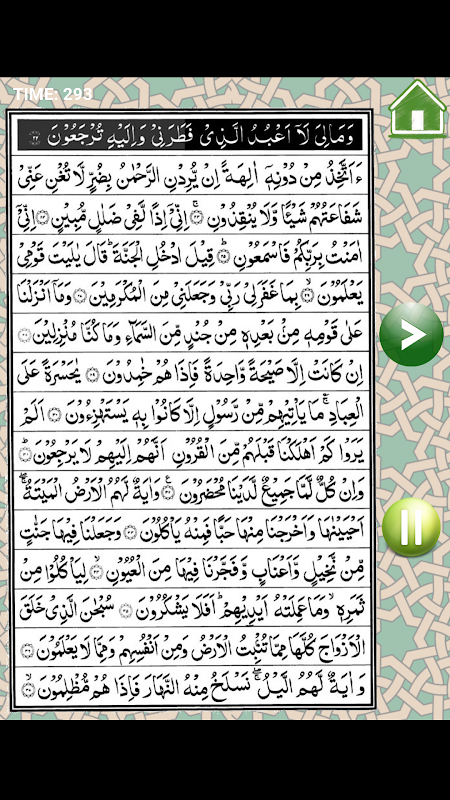 TIME: 293
وَمَا لِىَ لَآ اَعْبُدُ الَّذِىْ فَطَرَنِىْ وَاِلَيْهِ تُرْجَعُوْنَ ۝۲۲
ءَاَتَّخِذُ مِنْ دُوْنِهٖۤ اٰلِهَةً اِنْ يُّرِدْنِ الرَّحْمٰنُ بِضُرٍّ لَّا تُغْنِ عَنِّىْ
شَفَاعَتُهُمْ شَيْئًا وَّلَا يُنْقِذُوْنِ ۝۲۳ اِنِّىْۤ اِذًا لَّفِىْ ضَلٰلٍ مُّبِيْنٍ ۝۲۴ اِنِّىْۤ
اٰمَنْتُ بِرَبِّكُمْ فَاسْمَعُوْنِ ۝۲۵ قِيْلَ ادْخُلِ الْجَنَّةَ ؕ قَالَ يٰلَيْتَ قَوْمِىْ
يَعْلَمُوْنَ ۝۲۶ بِمَا غَفَرَلِىْ رَبِّىْ وَجَعَلَنِىْ مِنَ الْمُكْرَمِيْنَ ۝۲۷ وَمَاۤ اَنْزَلْنَا
عَلٰى قَوْمِهٖ مِنْۢ بَعْدِهٖ مِنْ جُنْدٍ مِّنَ السَّمَآءِ وَمَا كُنَّا مُنْزِلِيْنَ ۝۲۸
اِنْ كَانَتْ اِلَّا صَيْحَةً وَّاحِدَةً فَاِذَا هُمْ خٰمِدُوْنَ ۝۲۹ يٰحَسْرَةً عَلَى
الْعِبَادِ ۚ مَا يَاْتِيْهِمْ مِّنْ رَّسُوْلٍ اِلَّا كَانُوْا بِهٖ يَسْتَهْزِءُوْنَ ۝۳۰ اَلَمْ
يَرَوْا كَمْ اَهْلَكْنَا قَبْلَهُمْ مِّنَ الْقُرُوْنِ اَنَّهُمْ اِلَيْهِمْ لَا يَرْجِعُوْنَ ۝۳۱
وَاِنْ كُلٌّ لَّمَّا جَمِيْعٌ لَّدَيْنَا مُحْضَرُوْنَ ۝۳۲ وَاٰيَةٌ لَّهُمُ الْاَرْضُ الْمَيْتَةُ ۖ
اَحْيَيْنٰهَا وَاَخْرَجْنَا مِنْهَا حَبًّا فَمِنْهُ يَاْكُلُوْنَ ۝۳۳ وَجَعَلْنَا فِيْهَا جَنّٰتٍ
مِّنْ نَّخِيْلٍ وَّاَعْنَابٍ وَّفَجَّرْنَا فِيْهَا مِنَ الْعُيُوْنِ ۝۳۴ لِيَاْكُلُوْا مِنْ
ثَمَرِهٖ ۙ وَمَا عَمِلَتْهُ اَيْدِيْهِمْ ؕ اَفَلَا يَشْكُرُوْنَ ۝۳۵ سُبْحٰنَ الَّذِىْ خَلَقَ
الْاَزْوَاجَ كُلَّهَا مِمَّا تُنْۢبِتُ الْاَرْضُ وَمِنْ اَنْفُسِهِمْ وَمِمَّا لَا يَعْلَمُوْنَ ۝۳۶
وَاٰيَةٌ لَّهُمُ الَّيْلُ ۖ نَسْلَخُ مِنْهُ النَّهَارَ فَاِذَا هُمْ مُّظْلِمُوْنَ ۝۳۷